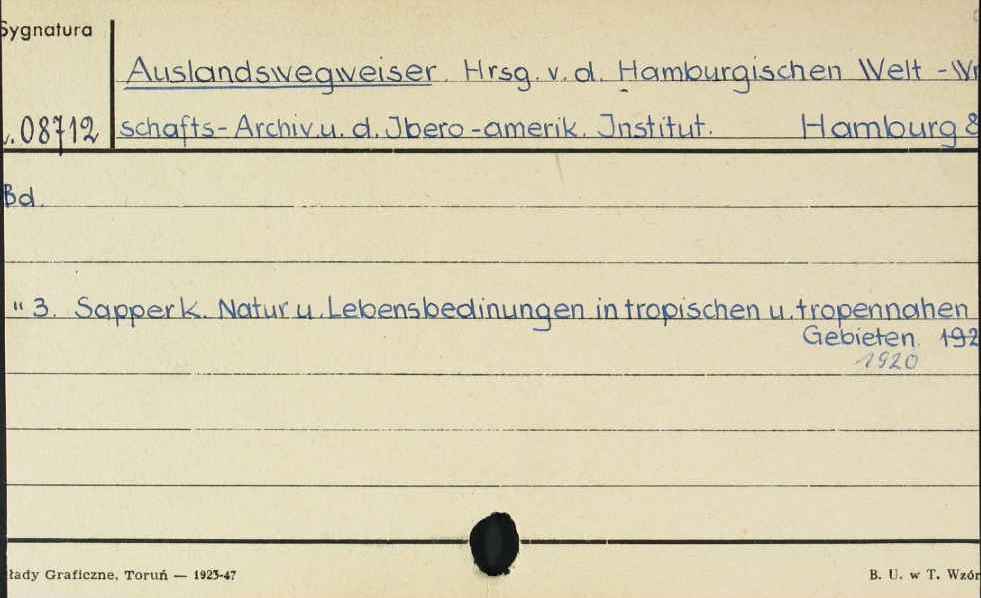 Sygnatura
Auslandswegweiser. Hrsg. v. d. Hamburgischen Welt-Wi
08712 schafts-Archiv.u. d. Jbero-amerik. Jnstitut. Hamburg &
Bd.
" 3. Sapper K. Natur u. Lebensbedinungen in tropischen u. tropennahen
Gebieten. 192
1920
łady Graficzne, Toruń — 1923-47 B. U. w T. Wzór